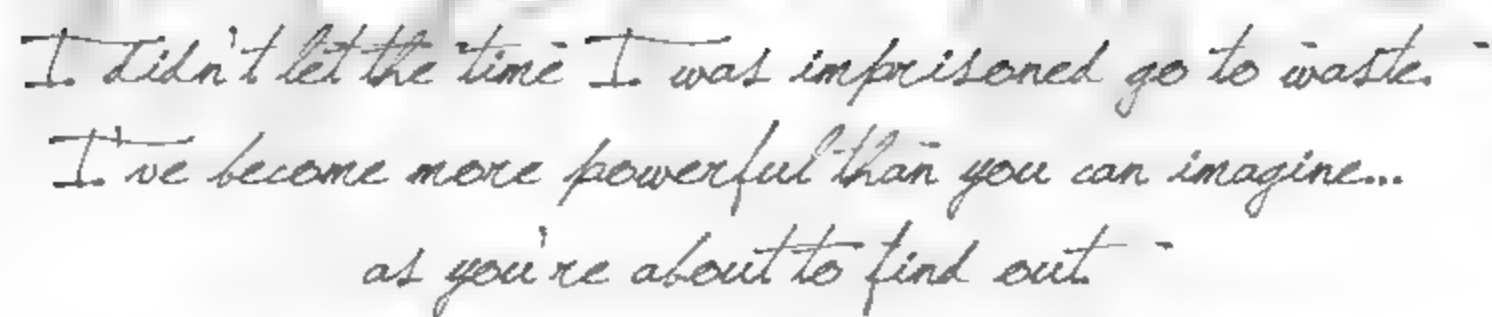 I didn't let the time I was imprisoned go to waste.
I've become more powerful than you can imagine...
as you're about to find out.